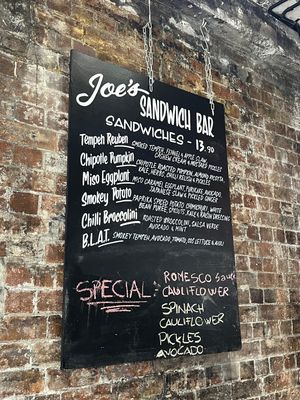 Joe's
SANDWICH BAR
SANDWICHES - 13.90
Tempeh Reuben SMOKED TEMPEH, FENNEL & APPLE SLAW,
CASHEW CREAM & MUSTARD PICKLES
Chipotle Pumpkin CHIPOTLE ROASTED PUMPKIN, ALMOND RICOTTA
KALE, HERBS, CHILLI RELISH & PICKLES
Miso Eggplant MISO CARAMEL EGGPLANT, FURIKAKE, AVOCADO,
JAPANESE SLAW & PICKLED GINGER
Smokey Potato PAPRIKA SPICED POTATO, CHIMICHURRI, WHITE
BEAN PUREE, SPROUTS, KALE & DRESSING
Chilli Broccolini ROASTED BROCCOLINI, SALSA VERDE,
AVOCADO & MINT
B.L.A.T. SMOKEY TEMPEH, AVOCADO, TOMATO, COS LETTUCE & AIOLI
SPECIAL: ROMESCO Sauce
CAULIFLOWER
SPINACH
CAULIFLOWER
PICKLES
AVOCADO